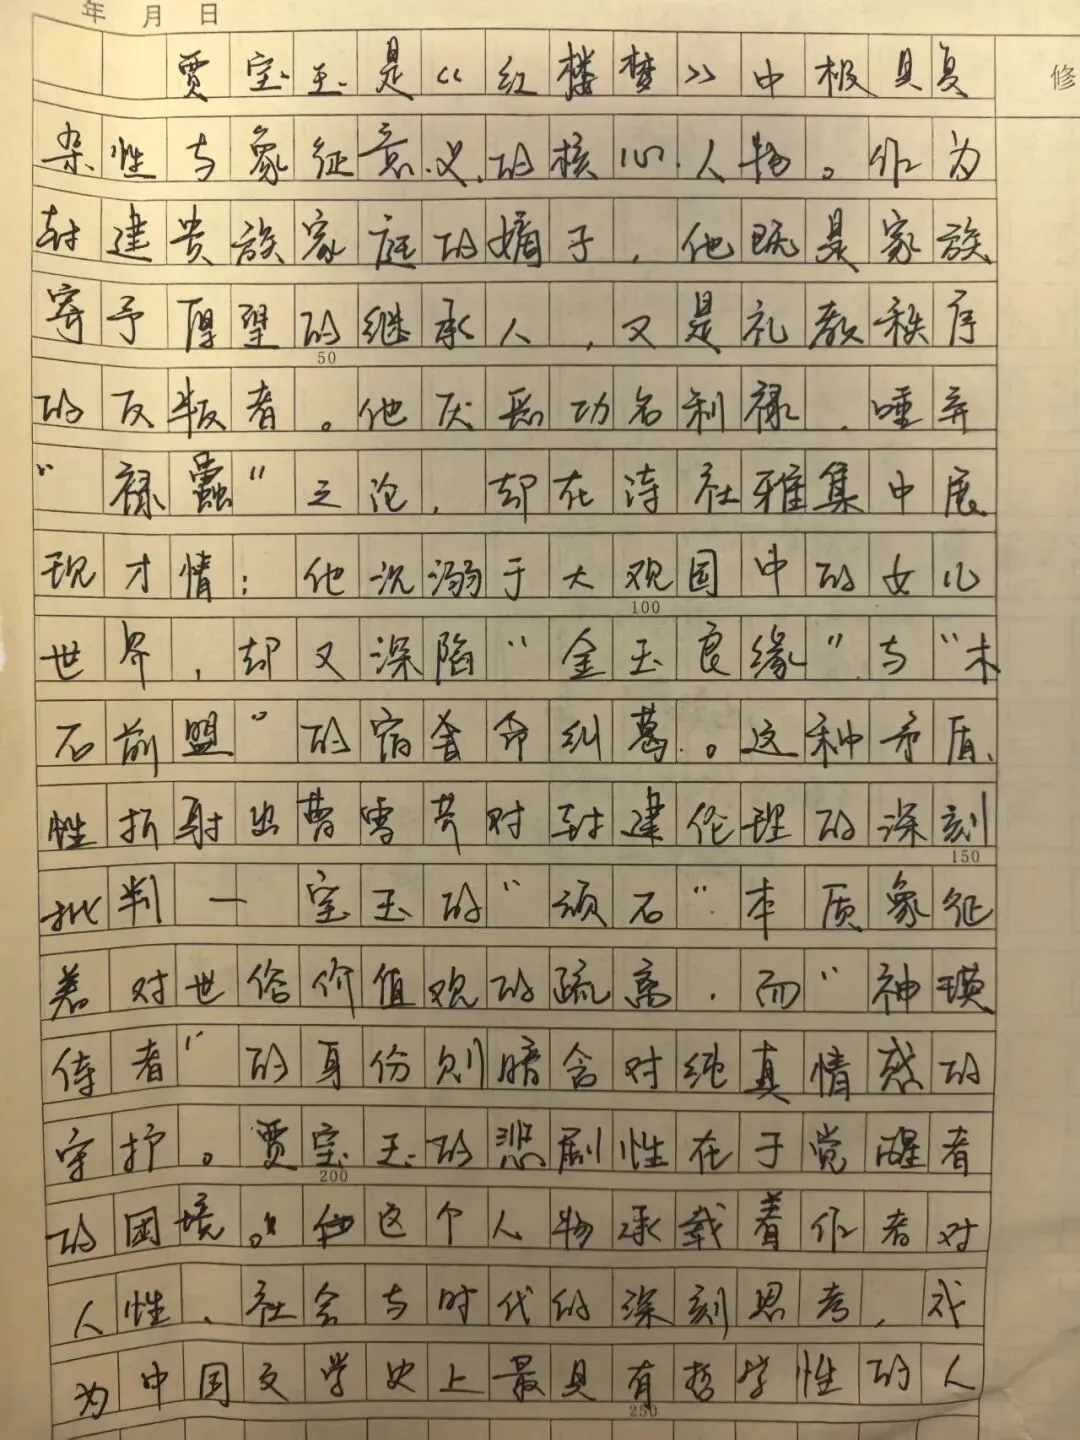 年 月 日
贾宝玉是《红楼梦》中极具复 修
杂性与象征意义的核心人物。作为
封建贵族家庭的嫡子，他既是家族
寄予厚望的继承人，又是礼教秩序
50
的反叛者。他厌恶功名利禄，唾弃
“禄蠹”之论，却在诗社雅集中展
现才情；他沉溺于大观园中的女儿
100
世界，却又深陷“金玉良缘”与“木
石前盟”的宿命纠葛。这种矛盾
性折射出曹雪芹对封建伦理的深刻
150
批判—宝玉的“顽石”本质象征
着对世俗价值观的疏离，而“神瑛
侍者”的身份则暗含对纯真情感的
守护。贾宝玉的悲剧性在于觉醒者
200
的困境。这个人物承载着作者对
人性、社会与时代的深刻思考，成
为中国文学史上最具有哲学性的人
250